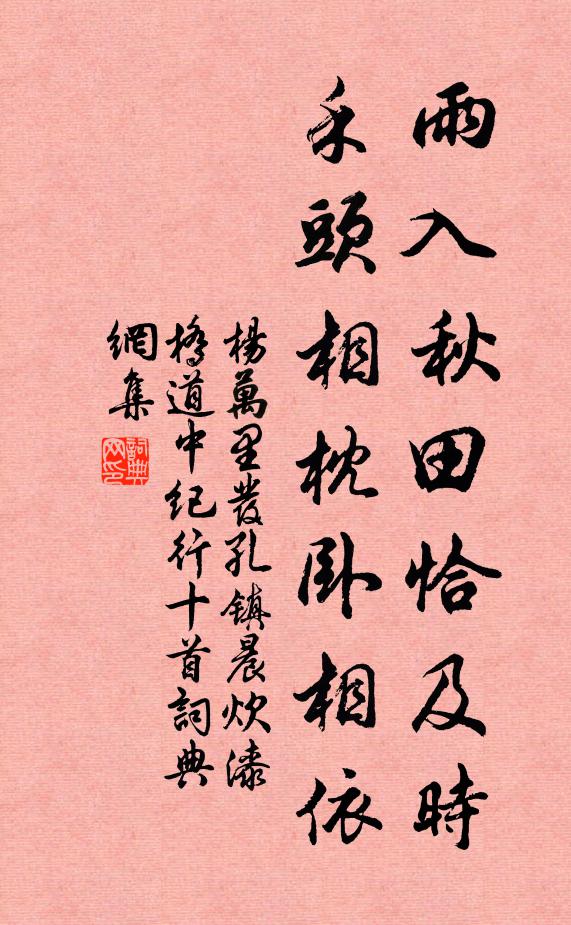 雨入秋田恰及時
禾頭相枕臥相依
楊萬里發孔鎮晨炊漆
橋道中紀行十首詞典
網集
詞典
网印